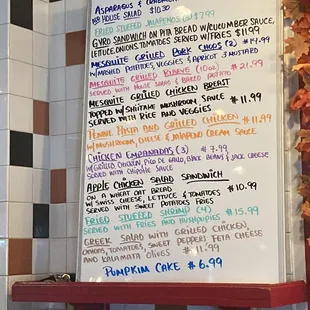 ASPARAGUS &
HB HOUSE SALAD $10
FRIED STUFFED JALAPENOS $7.99
GYRO SANDWICH ON PITA BREAD W/CUCUMBER SAUCE,
LETTUCE, ONIONS, TOMATOES SERVED W/FRIES $11.99
MESQUITE GRILLED PORK CHOPS (2) $17.99
W/MASHED POTATOES, VEGGIES, & APRICOT & MUSTARD
MESQUITE GRILLED RIBEYE (10oz) $21.99
SERVED WITH HOUSE SALAD & BAKED POTATO
MESQUITE GRILLED CHICKEN BREAST
TOPPED W/SHIITAKE MUSHROOM SAUCE $11.99
SERVED WITH RICE AND VEGGIES
PENNE PASTA AND GRILLED CHICKEN $11.99
W/MUSHROOMS, CHEESE & JALAPENO CREAM SAUCE
CHICKEN EMPANADAS (3) $7.99
W/GRILLED CHICKEN, PICO DE GALLO, BLACK BEANS & JACK CHEESE
SERVED WITH CHIPOTLE SAUCE
APPLE CHICKEN SALAD SANDWICH
ON A WHEAT OAT BREAD $10.99
W/SWISS CHEESE, LETTUCE & TOMATOES
SERVED WITH SWEET POTATOES FRIES
FRIED STUFFED SHRIMP (4) $15.99
SERVED WITH FRIES AND HUSHPUPPIES
GREEK SALAD WITH GRILLED CHICKEN,
ONIONS, TOMATOES, SWEET PEPPERS FETA CHEESE
AND KALAMATA OLIVES $11.99
PUMPKIM CAKE $6.99